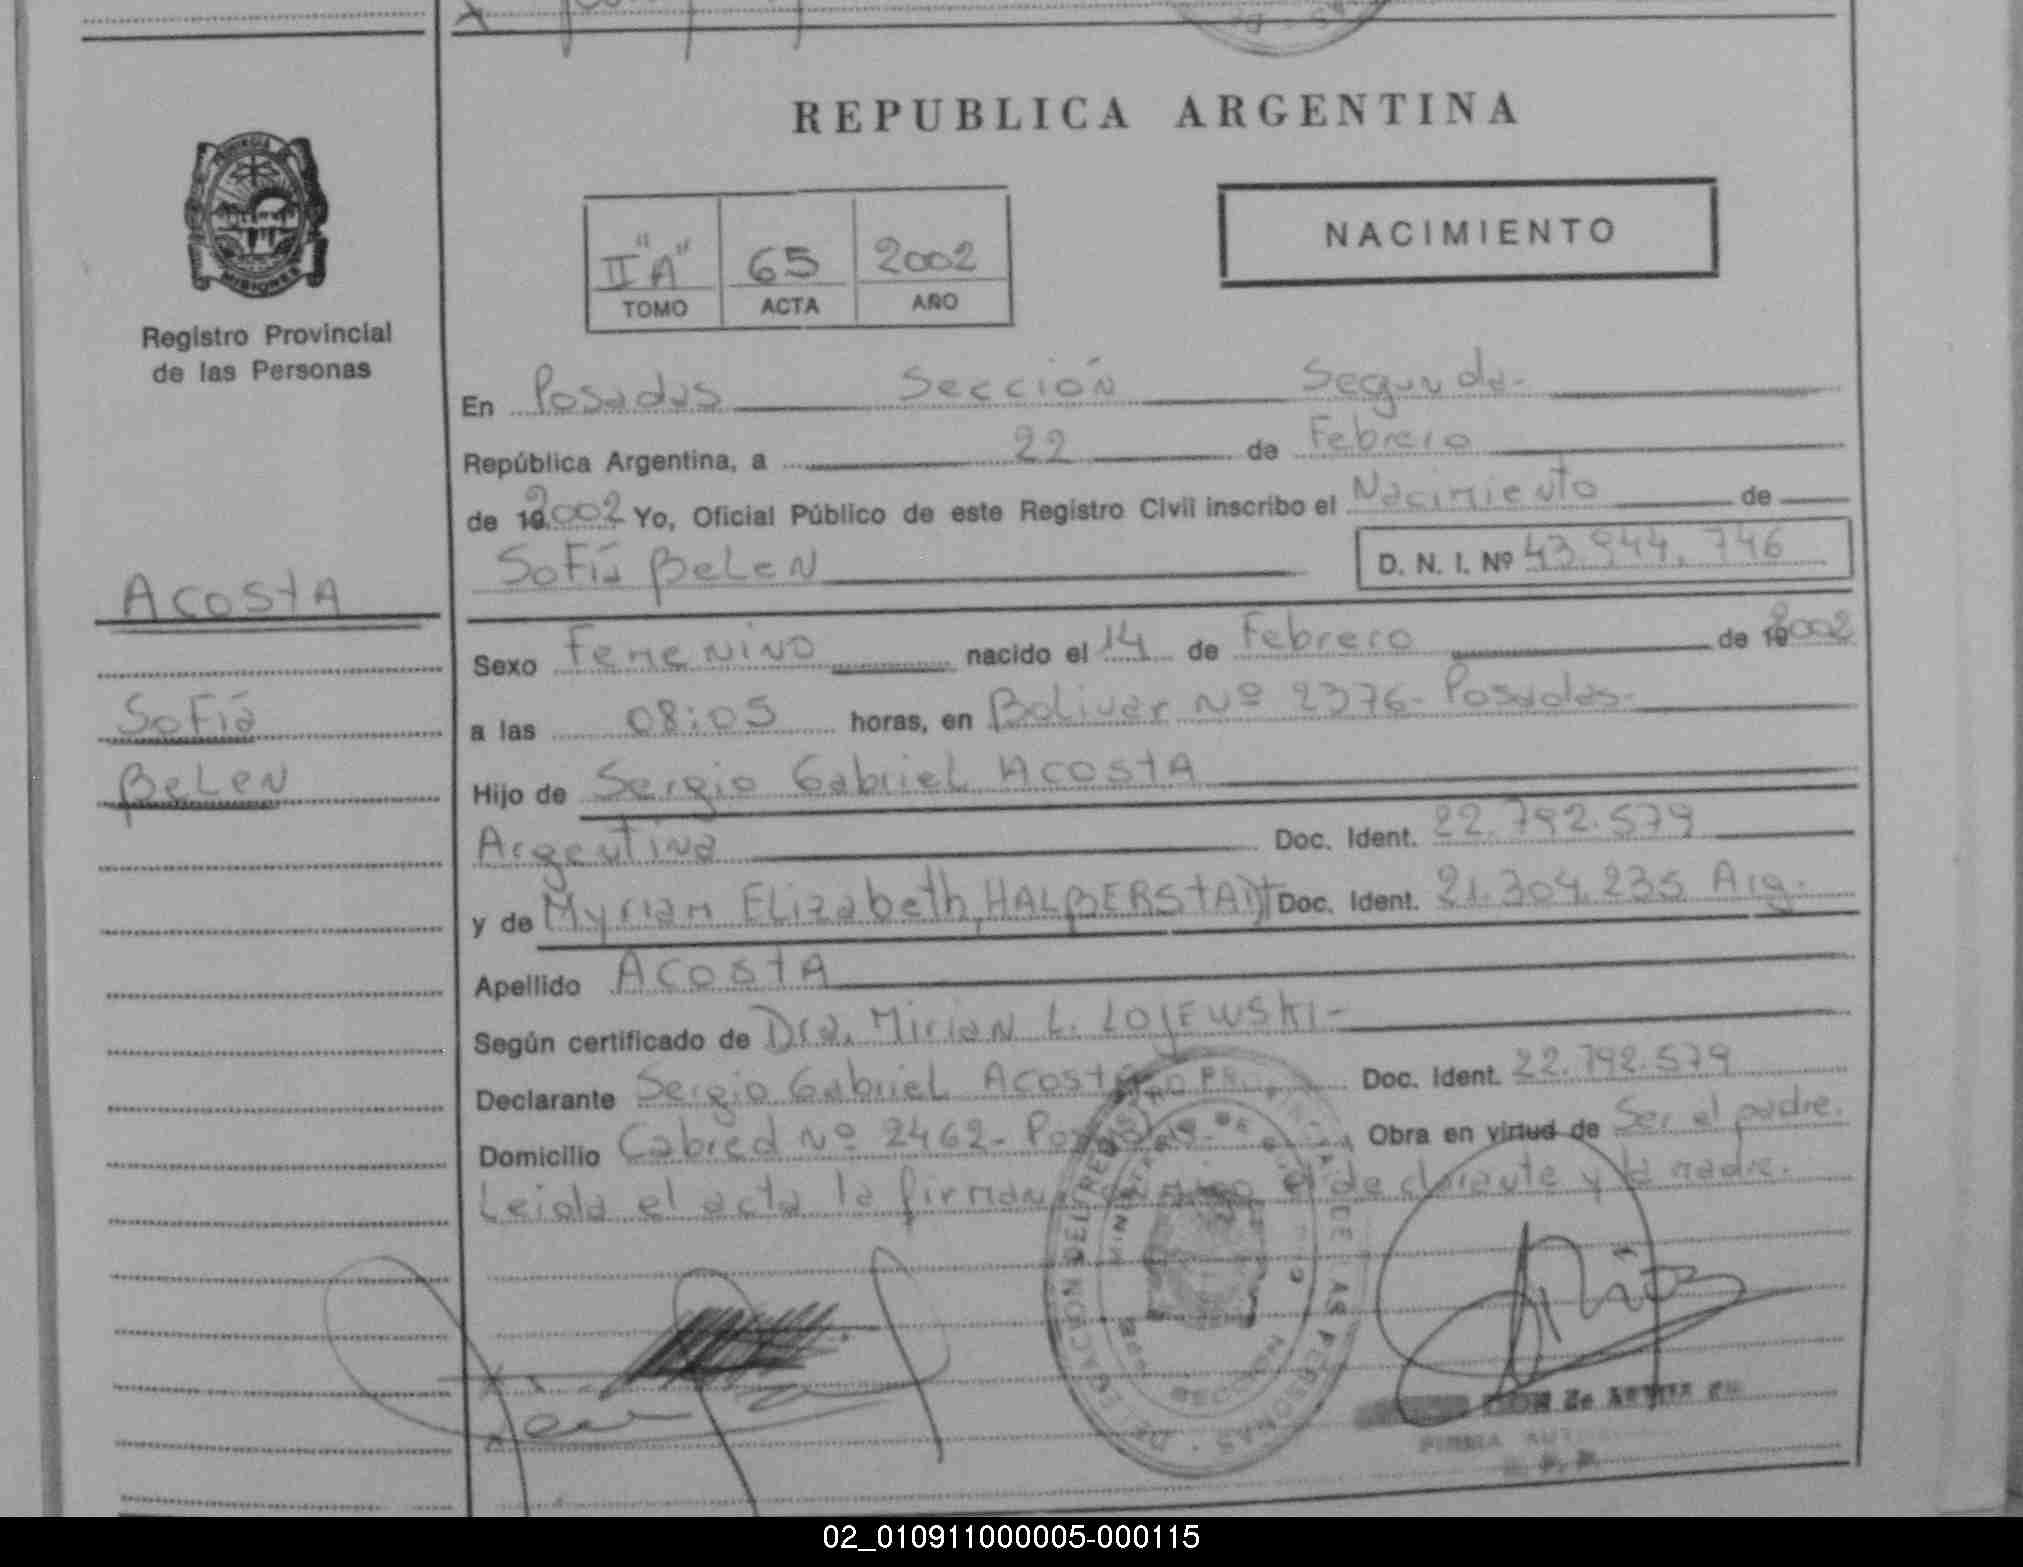 REPUBLICA ARGENTINA
PROVINCIA DE
MISIONES
Registro Provincial
de las Personas
NACIMIENTO
II "A" 65 2002
TOMO ACTA AÑO
En Posadas Sección Segunda-
República Argentina, a 22 de Febrero
de 192002 Yo, Oficial Público de este Registro Civil inscribo el Nacimiento de
Sofía Belen D. N. I. Nº 43.944.746
ACOSTA
Sofía
Belen
Sexo Femenino nacido el 14 de Febrero de 192002
a las 08:05 horas, en Bolivar Nº 2376- Posadas-
Hijo de Sergio Gabriel ACOSTA
Argentina Doc. Ident. 22.792.579
y de Myriam Elizabeth, HALBERSTADT Doc. Ident. 21.304.235 Arg.
Apellido ACOSTA
Según certificado de Dra. Mirian L. LOJEWSKI-
Declarante Sergio Gabriel Acosta Doc. Ident. 22.792.579
Domicilio Cabred Nº 2462- Posadas- Obra en virtud de Ser el padre.
Leida el acta la firman conmigo el declarante y la madre.
DELEGACION DEL REGISTRO PROVINCIAL DE LAS PERSONAS
FIRMA
02_010911000005-000115